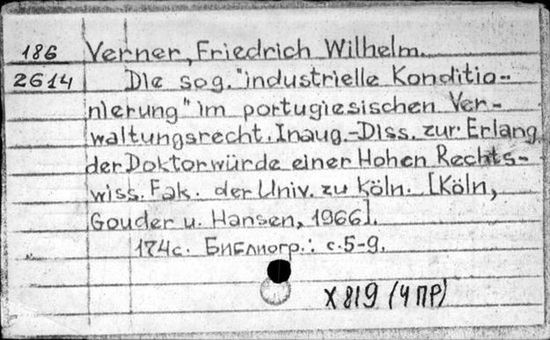 186 Verner, Friedrich Wilhelm.
2614 Die sog. "industrielle Konditio-
nierung" im portugiesischen Ver-
waltungsrecht. Inaug.-Diss. zur Erlang
der Doktorwürde einer Hohen Rechts-
wiss. Fak. der Univ. zu Köln. [Köln,
Gouder u. Hansen, 1966].
174с. Библиогр.: с.5-9.
X819 (4ПР)